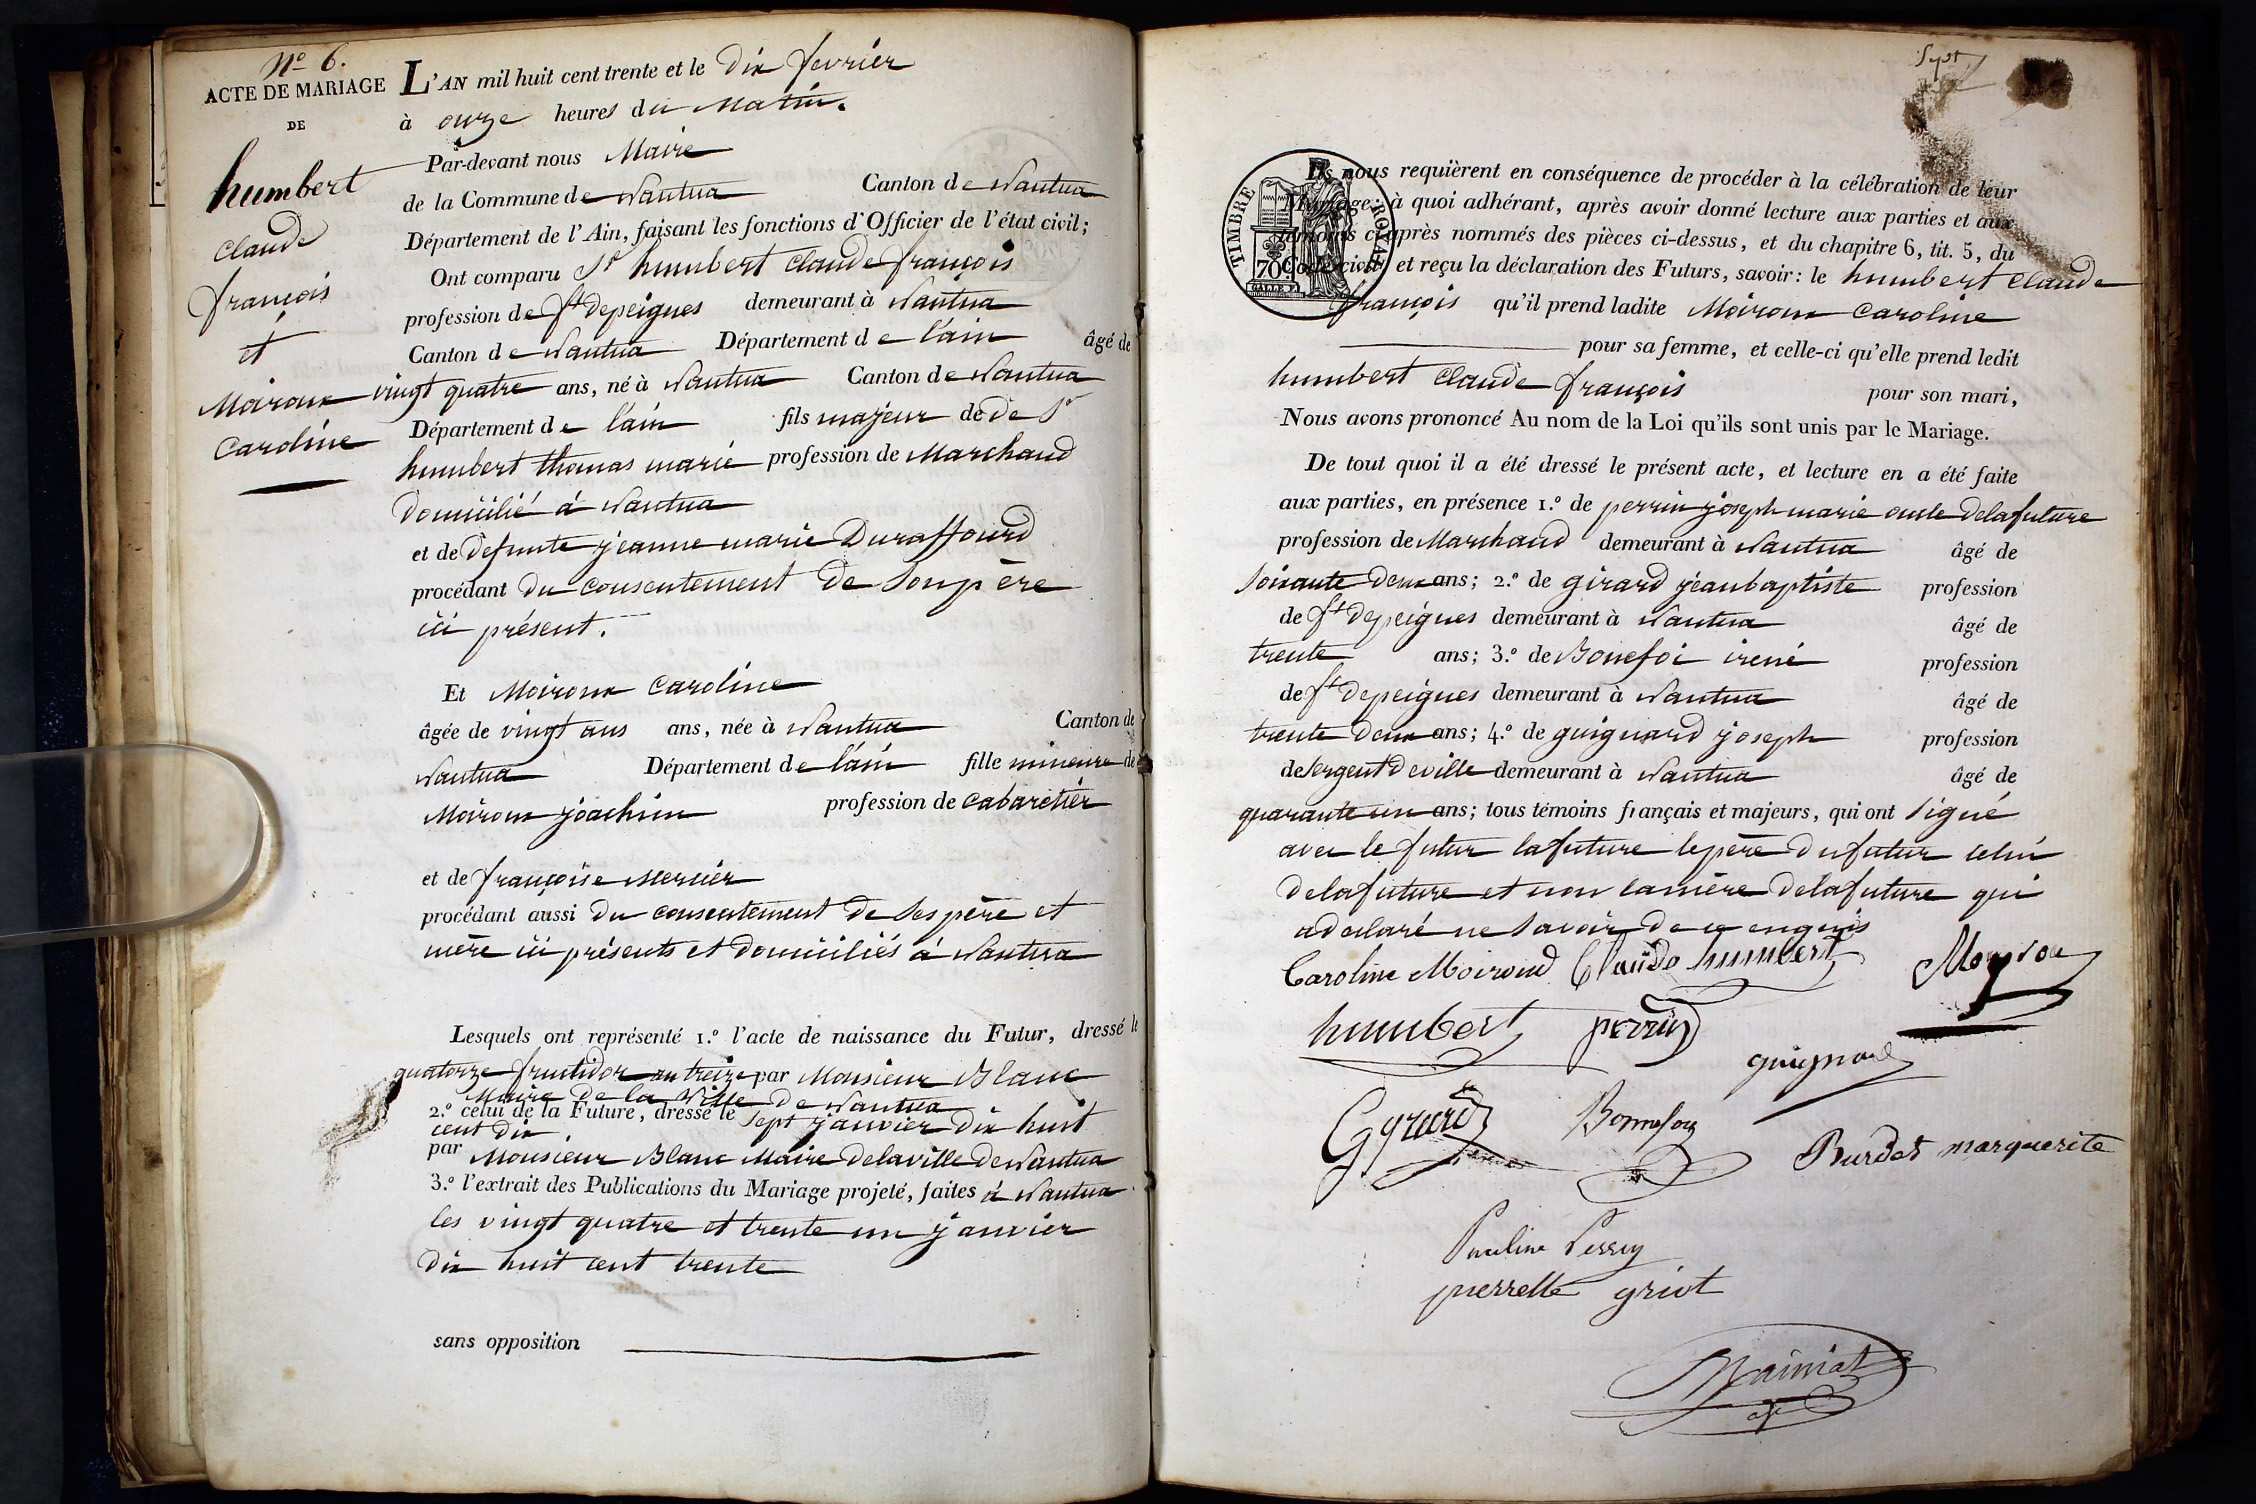 N° 6.
ACTE DE MARIAGE
DE
humbert
claude
françois
et
Moiroux
caroline
L'AN mil huit cent trente et le dix fevrier
à onze heures du matin.
Par-devant nous Maire
de la Commune de Nantua Canton de Nantua
Département de l'Ain, faisant les fonctions d'Officier de l'état civil;
Ont comparu Sr humbert claude françois
profession de ft depeignes demeurant à Nantua
Canton de Nantua Département de l'ain âgé de
vingt quatre ans, né à Nantua Canton de Nantua
Département de l'ain fils majeur de de Sr
humbert thomas marie profession de Marchand
domicilié à Nantua
et de defunte jeanne marie Duraffourd
procédant du consentement de son père
ici présent.
Et Moiroux caroline
âgée de vingt ans ans, née à Nantua Canton de
Nantua Département de l'ain fille mineure de
Moiroux joachim profession de cabaretier
et de françoise Mercier
procédant aussi du consentement de ses père et
mère ici présents et domiciliés à Nantua
Lesquels ont représenté 1.° l'acte de naissance du Futur, dressé le
quatorze fructidor an treize par Monsieur Blanc
Maire de la Ville de Nantua
2.° celui de la Future, dressé le sept janvier dix huit
cent dix
par Monsieur Blanc Maire delaville de Nantua
3.° l'extrait des Publications du Mariage projeté, faites à Nantua
les vingt quatre et trente un janvier
dix huit cent trente
sans opposition
Sept
TIMBRE ROYAL
70
Ils nous requièrent en conséquence de procéder à la célébration de leur
Mariage; à quoi adhérant, après avoir donné lecture aux parties et aux
témoins ci-après nommés des pièces ci-dessus, et du chapitre 6, tit. 5, du
Code civil, et reçu la déclaration des Futurs, savoir: le humbert claude
françois qu'il prend ladite Moiroux caroline
pour sa femme, et celle-ci qu'elle prend ledit
humbert claude françois pour son mari,
Nous avons prononcé Au nom de la Loi qu'ils sont unis par le Mariage.
De tout quoi il a été dressé le présent acte, et lecture en a été faite
aux parties, en présence 1.° de perrin joseph marie oncle delafuture
profession de Marchand demeurant à Nantua âgé de
soixante deux ans; 2.° de girard jeanbaptiste profession
de ft depeignes demeurant à Nantua âgé de
trente ans; 3.° de Bonefoi irené profession
de ft depeignes demeurant à Nantua âgé de
trente deux ans; 4.° de guignard joseph profession
de sergent deville demeurant à Nantua âgé de
quarante un ans; tous témoins français et majeurs, qui ont signé
avec le futur lafuture lepère dufutur celui
delafuture et non lamère delafuture qui
adeclaré ne savoir de ce enquis
Caroline Moiroud Claude humbert
humbert perrin
guignard
Gyrard Bonnefoy
Burdet marguerite
Pauline Perrin
perrette griot